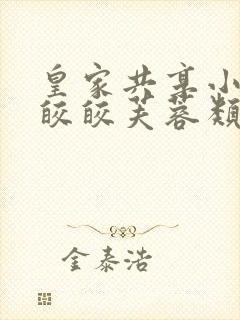 皇家共享小
皎皎芙蓉颊
金泰浩